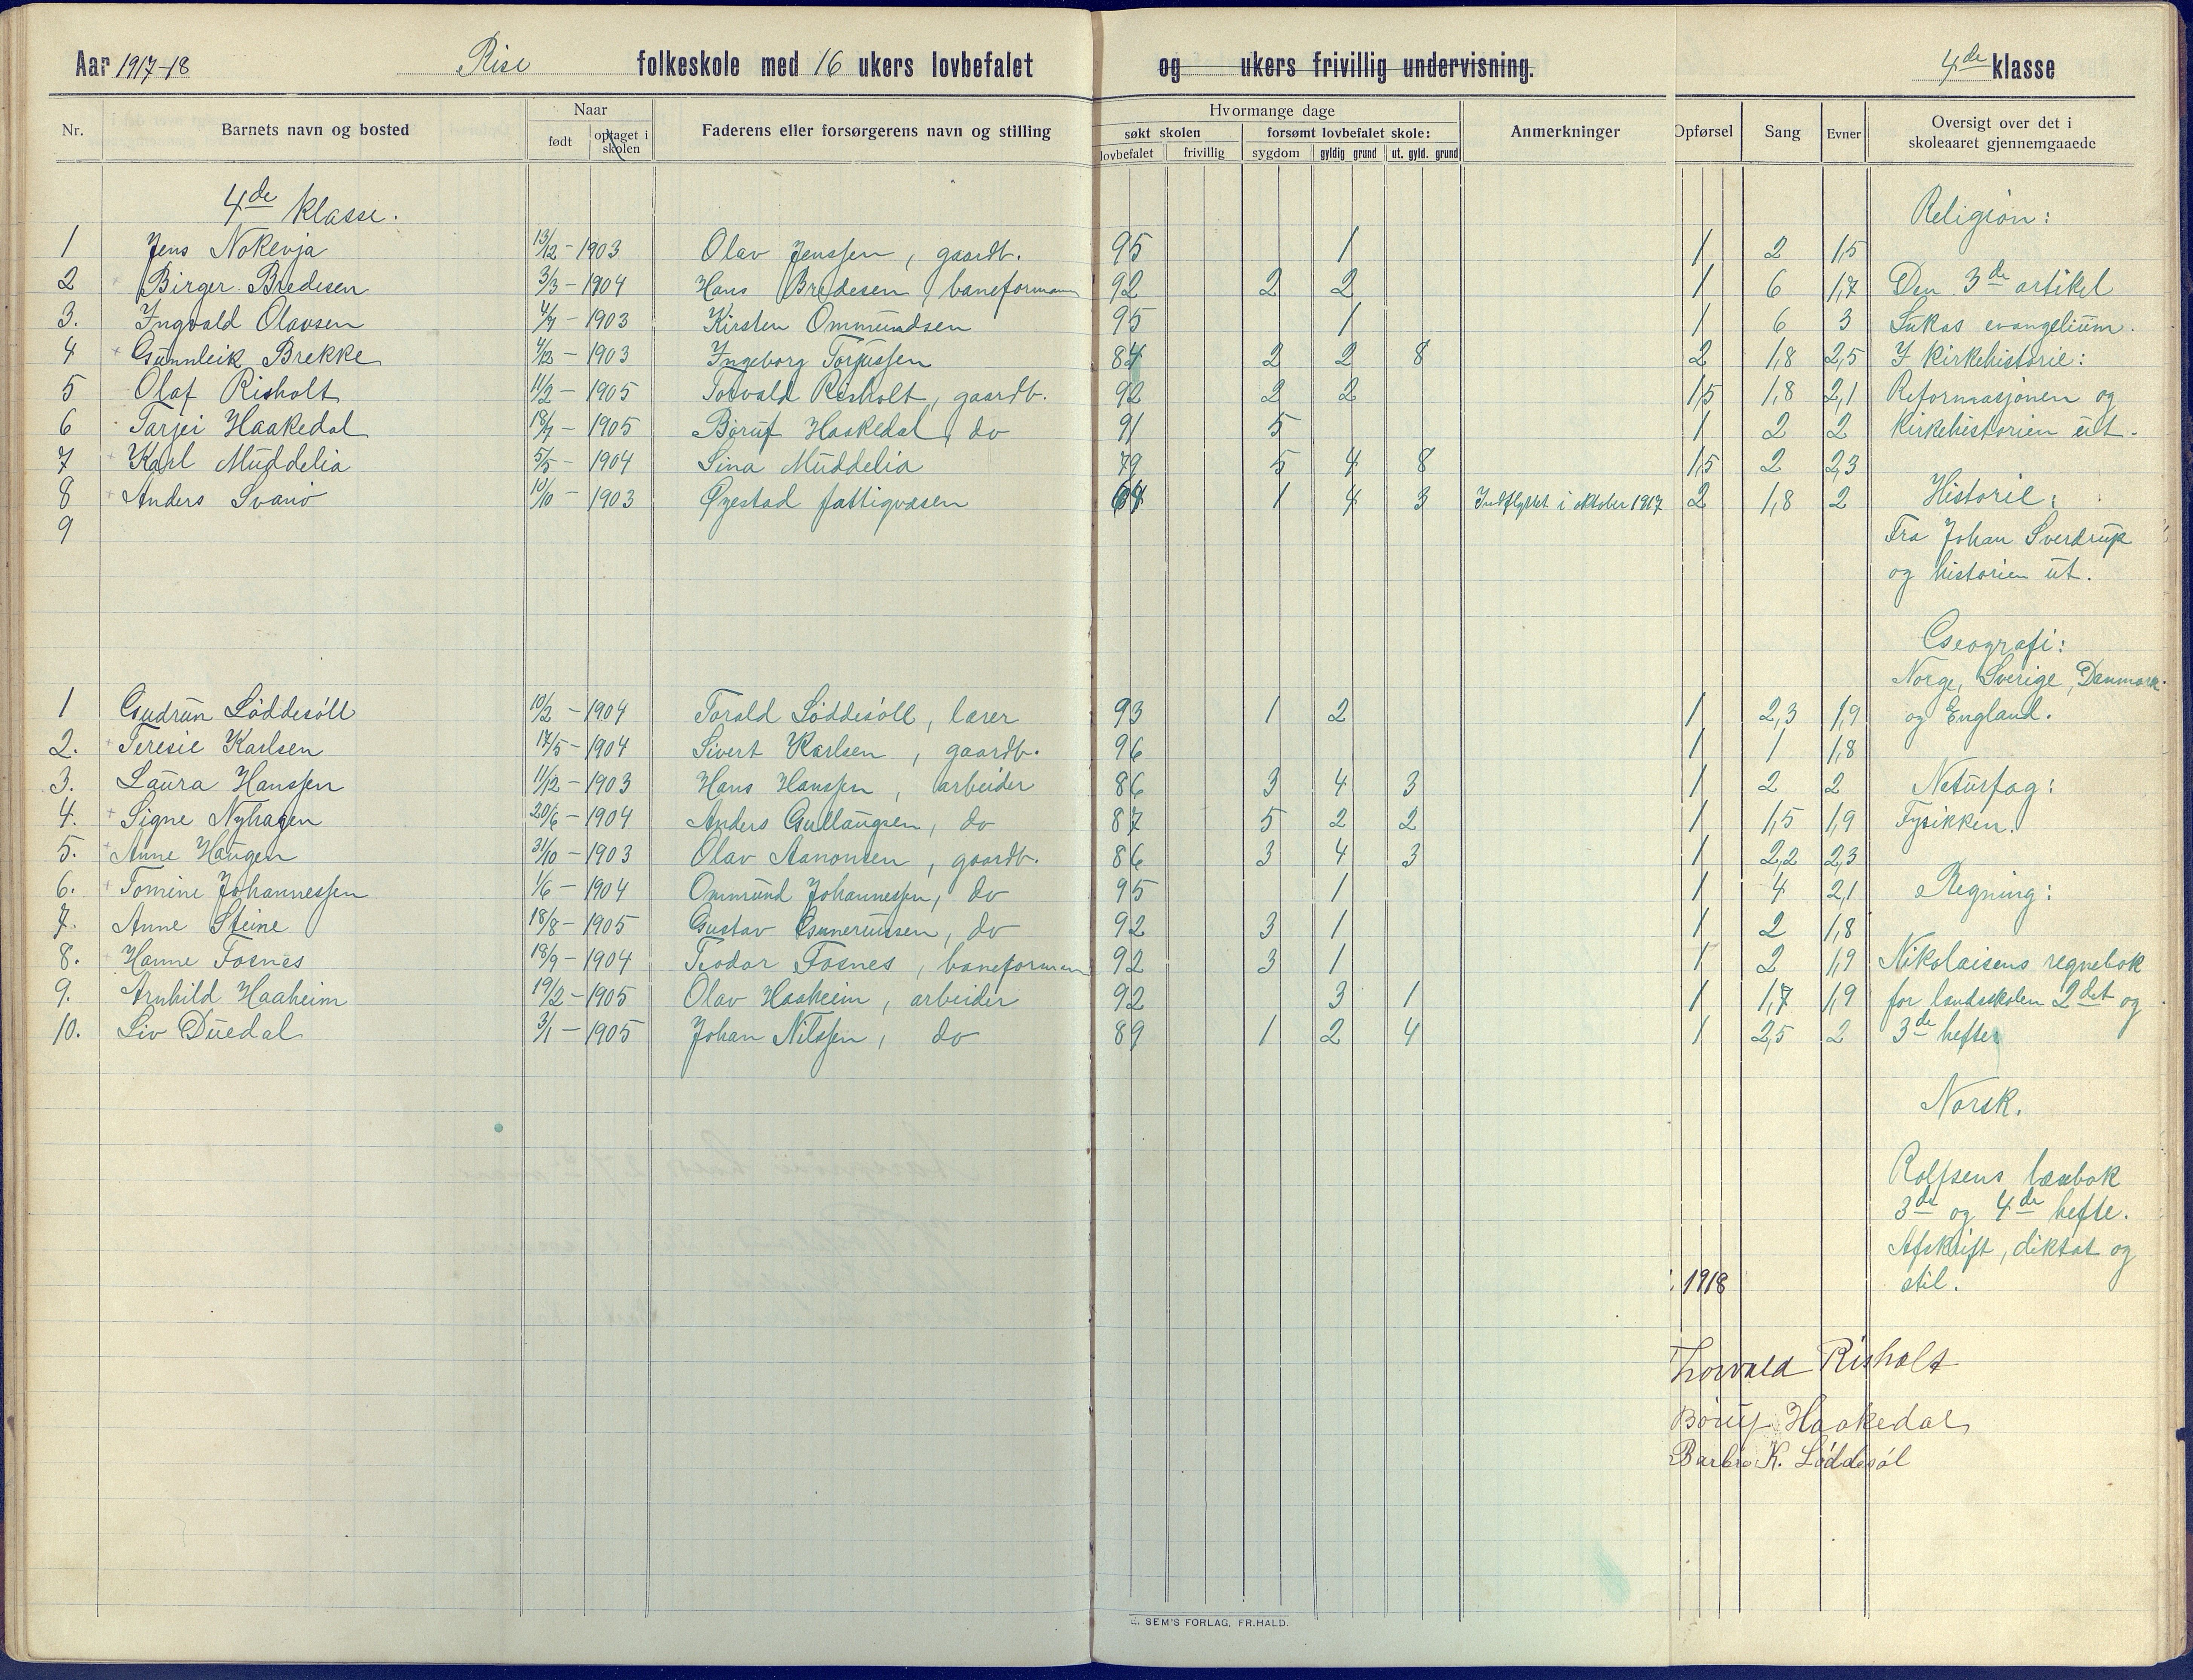 Aar 1917-18 Rise folkeskole med 16 ukers lovbefalet og ukers frivillig undervisning. 4de klasse
Nr. Barnets navn og bosted Naar født optaget i skolen Faderens eller forsørgerens navn og stilling Hvormange dage søkt skolen lovbefalet frivillig forsømt lovbefalet skole: sygdom gyldig grund ut. gyld. grund Anmerkninger Opførsel Sang Evner Oversigt over det i skoleaaret gjennemgaaede
4de klasse. Religion:
1 Jens Nokevja 13/12 - 1903 Olav Jenssen, gaardb. 95 1 1 2 1,5
2 Birger Bredesen 3/3 - 1904 Hans Bredesen, baneformann 92 2 2 1 6 1,7 Den 3de artikel
3. Ingvald Olavsen 4/7 - 1903 Kirsten Ommundsen 95 1 1 6 3 Lukas evangelium.
4 Gunnleik Brekke 4/12 - 1903 Ingeborg Torjussen 84 2 2 8 2 1,8 2,5 I kirkehistorie:
5 Olaf Risholt 11/2 - 1905 Torvald Risholt, gaardb. 92 2 2 1,5 1,8 2,1 Reformasjonen og
6 Tarjei Haakedal 18/7 - 1905 Børuf Haakedal, do 91 5 1 2 2 kirkehistorien ut.
7 Karl Muddelia 5/5 - 1904 Sina Muddelia 79 5 4 8 1,5 2 2,3
8 Anders Svanø 10/10 - 1903 Øyestad fattigvæsen 1 4 3 Indflyttet i oktober 1917 2 1,8 2 Historie:
9 Fra Johan Sverdrup
og historien ut.
Geografi:
Norge, Sverige, Danmark
1 Gudrun Løddesøll 10/2 - 1904 Torald Løddesøll, lærer 93 1 2 1 2,3 1,9 og England.
2. Teresie Karlsen 17/5 - 1904 Sivert Karlsen, gaardb. 96 1 1 1,8
3. Laura Hanssen 11/12 - 1903 Hans Hanssen, arbeider 86 3 4 3 1 2 2 Naturfag:
4. Signe Nyhagen 20/6 - 1904 Anders Gullaugsen, do 87 5 2 2 1 1,5 1,9 Fysikken.
5. Anne Haugen 31/10 - 1903 Olav Aanonsen, gaardb. 86 3 4 3 1 2,2 2,3
6. Tomine Johannessen 1/6 - 1904 Ommund Johannessen, do 95 1 1 4 2,1 Regning:
7. Anne Steine 18/8 - 1905 Gustav Gunneriussen, do 92 3 1 1 2 1,8
8. Hanne Fosnes 18/9 - 1904 Teodor Fosnes, baneformann 92 3 1 1 2 1,9 Nikolaisens regnebok
9. Arnhild Haaheim 19/2 - 1905 Olav Haaheim, arbeider 92 3 1 1 1,7 1,9 for landsskolen 2det og
10. Liv Duedal 3/1 - 1905 Johan Nilssen, do 89 1 2 4 1 2,5 2 3de hefter
Norsk.
Rolfsens læsebok
3de og 4de hefte.
Afskrift, diktat og
stil.
1918
Thorvald Risholt
Børuf Haakedal
Barbro K. Løddesøl
SEM'S FORLAG, FR.HALD.